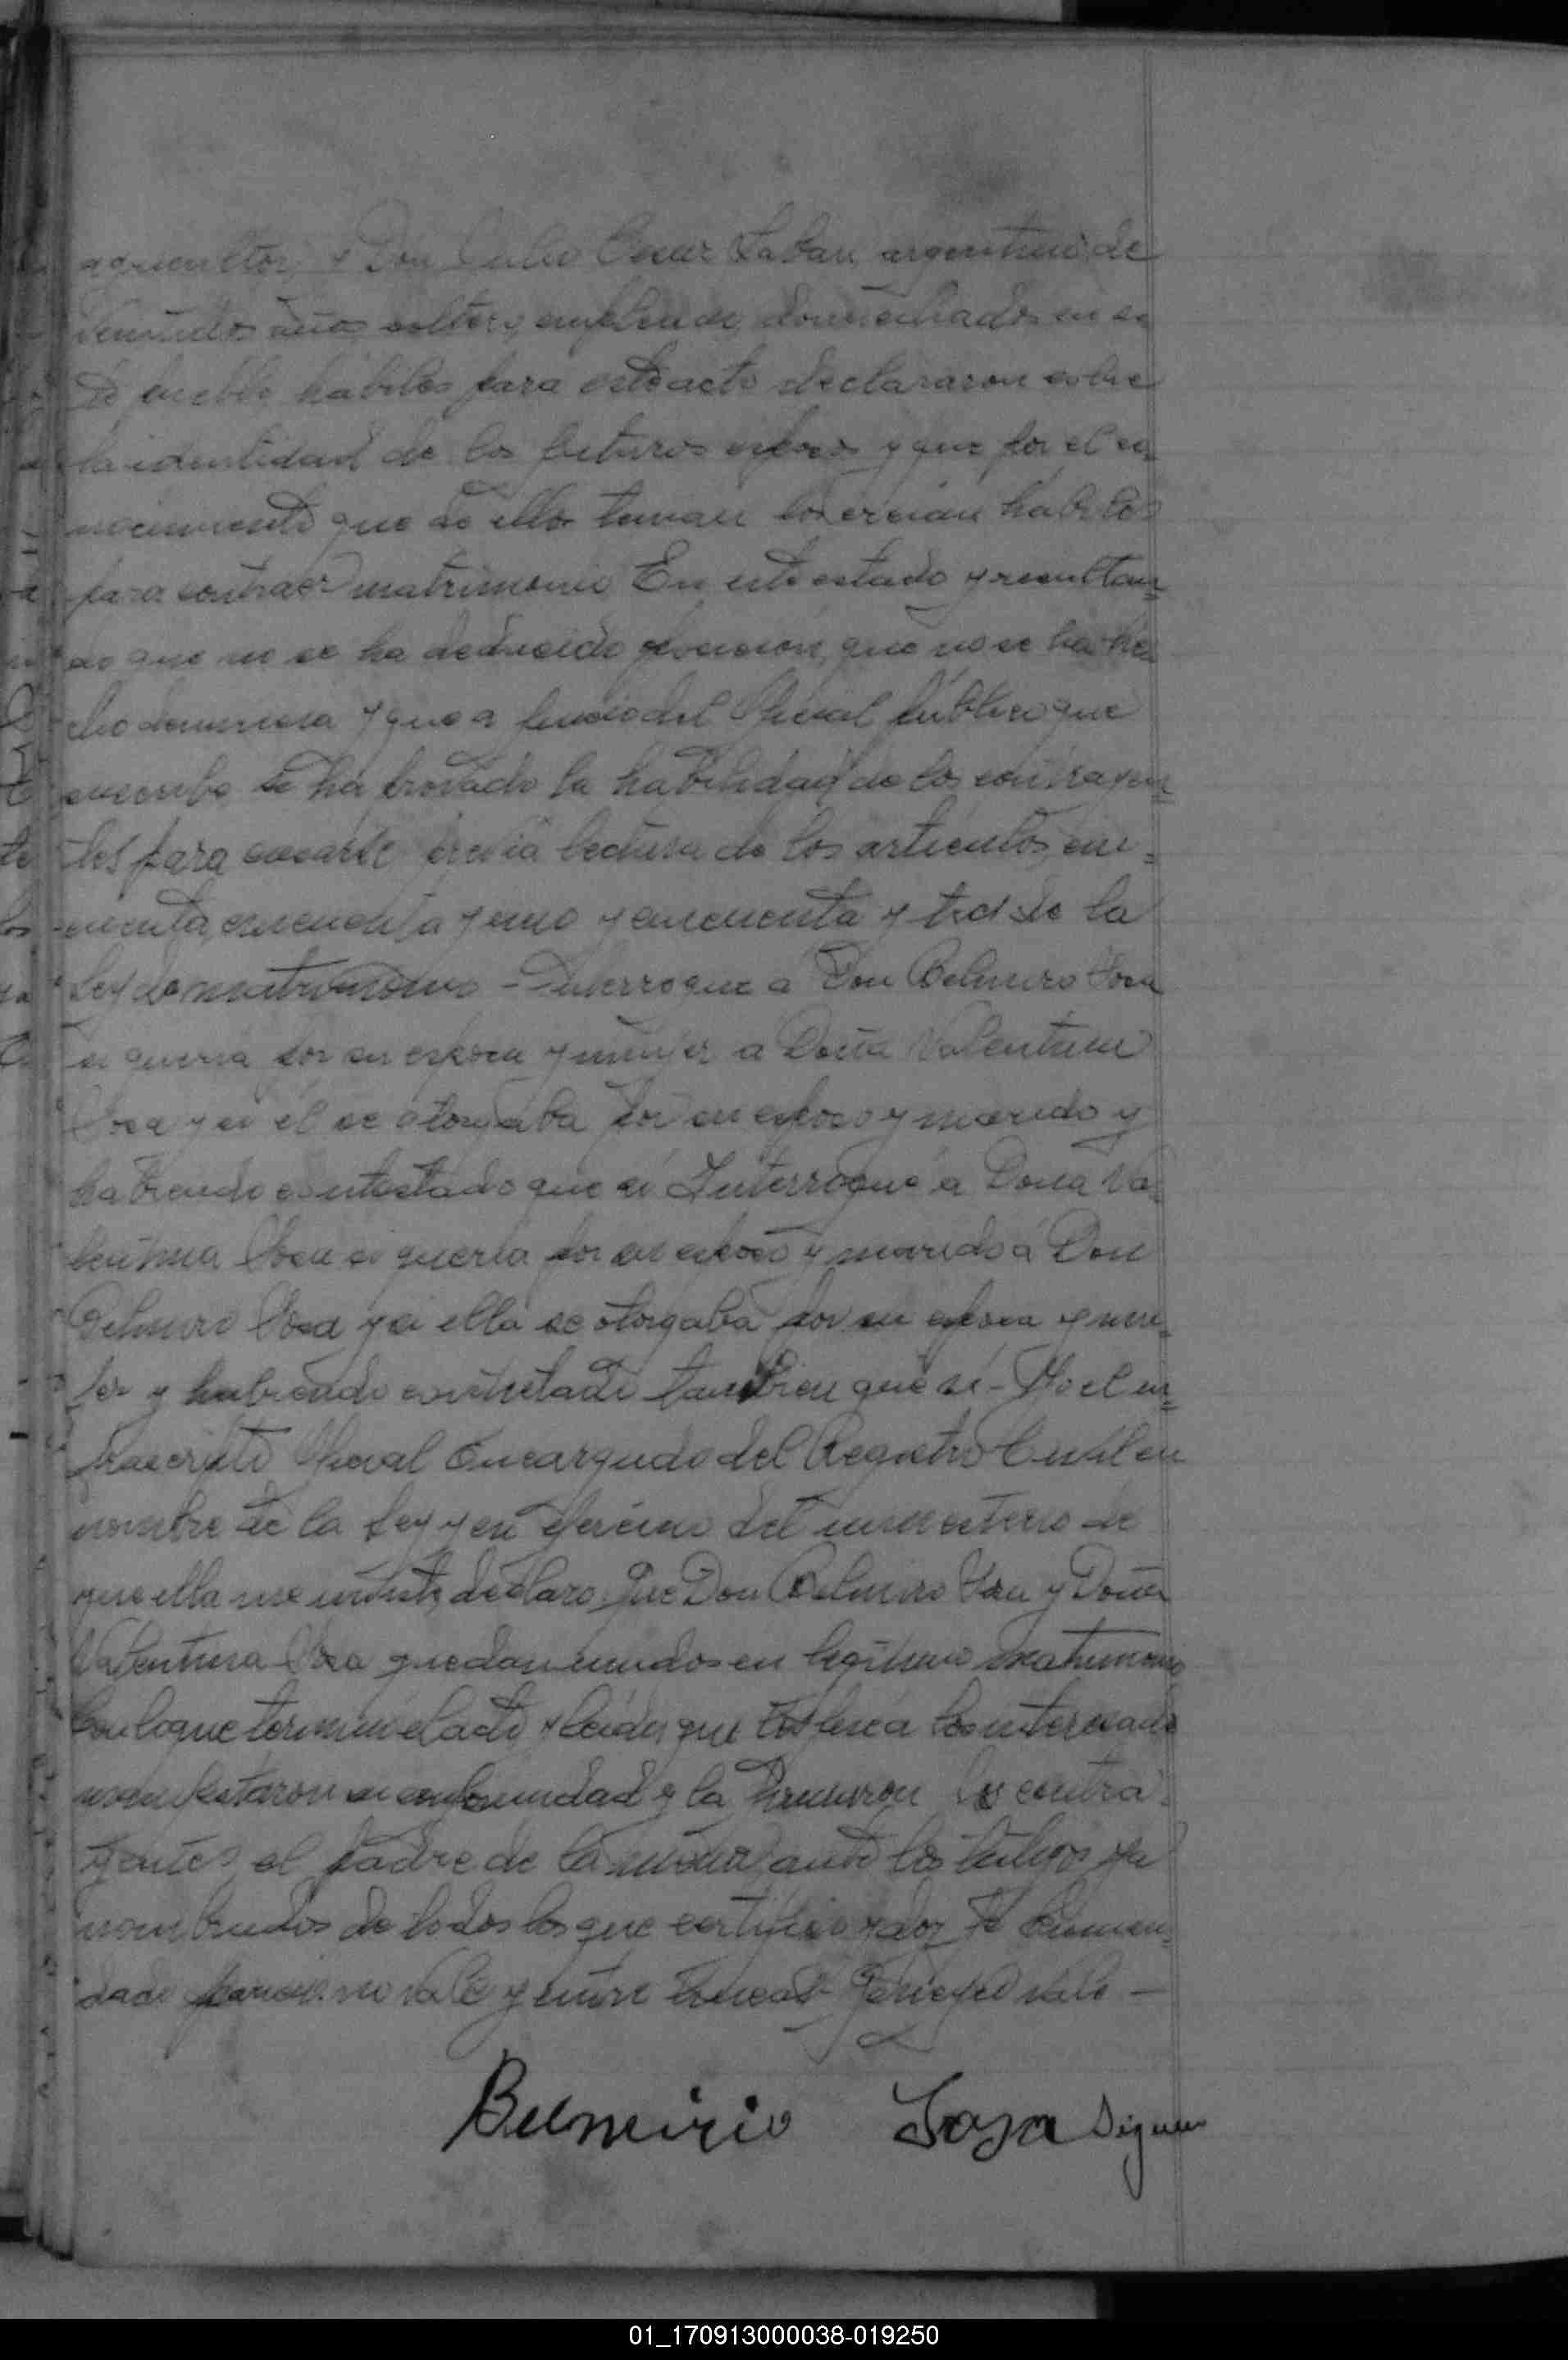 agricultor, y Don Julio Cesar Laban, argentino de
veintidos años soltero, empleado, domiciliados en es
te pueblo, hábiles para este acto declararon sobre
la identidad de los futuros esposos y que por el co-
nocimiento que de ellos tenian los creian habiles
para contraer matrimonio En este estado y resultan=
do que no se ha deducido oposicion, que no se ha he
cho denuncia y que a juicio del Oficial publico que
suscribe se ha probado la habilidad de los contrayen=
tes para casarse previa lectura de los articulos, cin=
cuenta, cincuenta y uno y cincuenta y tres de la
Ley de matrimonio - Interrogue a Don Belmiro Sosa
si queria por su esposa y mujer a Doña Valentina
Sosa y si él se otorgaba por su esposo y marido y
habiendo contestado que si Interrogué a Doña Va-
lentina Sosa si queria por su esposo y marido a Don
Belmiro Sosa y si ella se otorgaba por su esposa y mu=
jer y habiendo contestado tambien que si - Yo el in=
frascrito Oficial Encargado del Registro Civil en
nombre de la Ley y en ejercicio del ministerio de
que ella me inviste, declaro Que Don Belmiro Sosa y Doña
Valentina Sosa quedan unidos en legitimo matrimonio
Con lo que terminó el acto y leida que les fue a los interesados
manifestaron su conformidad y la firmaron los contra-
yentes, el padre de la ante los testigos ya
nombrados de todos los que certifico y doy fé Enmen=
dado no vale y entre lineas vale —
Belmirio Sosa Siguen
01_170913000038-019250